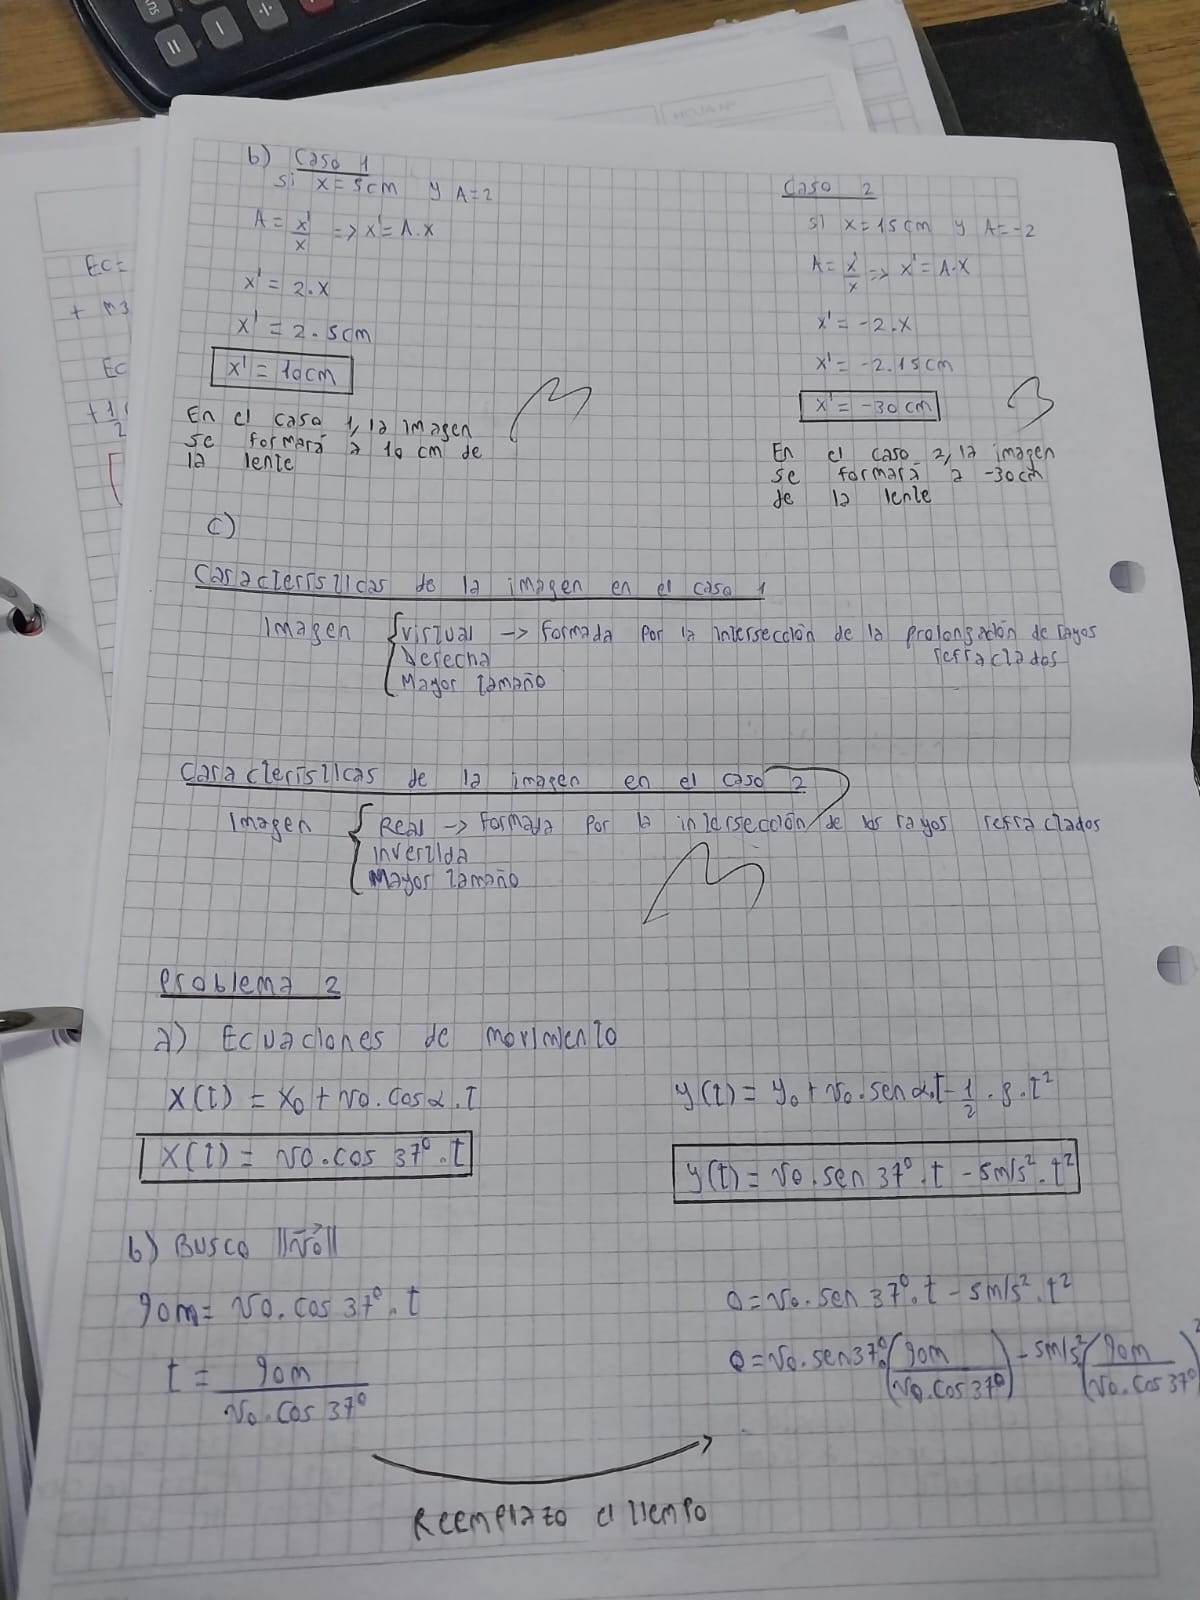 b) Caso 1
si x = 5cm y A = 2
A = x'/x => x' = A.x
x' = 2.x
x' = 2.5cm
x' = 10cm
En el caso 1, la imagen
se formará a 10 cm de
la lente
Caso 2
si x = 15cm y A = -2
A = x'/x => x' = A.x
x' = -2.x
x' = -2.15cm
x' = -30cm
En el caso 2, la imagen
se formará a -30cm
de la lente
c)
Características de la imagen en el caso 1
Imagen { virtual -> Formada por la intersección de la prolongación de rayos
refractados
Derecha
Mayor tamaño
Características de la imagen en el caso 2
Imagen { Real -> Formada por la intersección de los rayos refractados
invertida
Mayor tamaño
Problema 2
a) Ecuaciones de movimiento
x(t) = x₀ + v₀.cosα.t
y(t) = y₀ + v₀.senα.t - 1/2.g.t²
x(t) = v₀.cos 37°.t
y(t) = v₀.sen 37°.t - 5m/s².t²
b) Busco ||v₀||
90m = v₀.cos 37°.t
0 = v₀.sen 37°.t - 5m/s².t²
t = 90m/(v₀.cos 37°)
0 = v₀.sen37°.(90m/(v₀.cos 37°)) - 5m/s².(90m/(v₀.cos 37°))²
Reemplazo el tiempo
EC=
+ m3
EC
+ 1/2